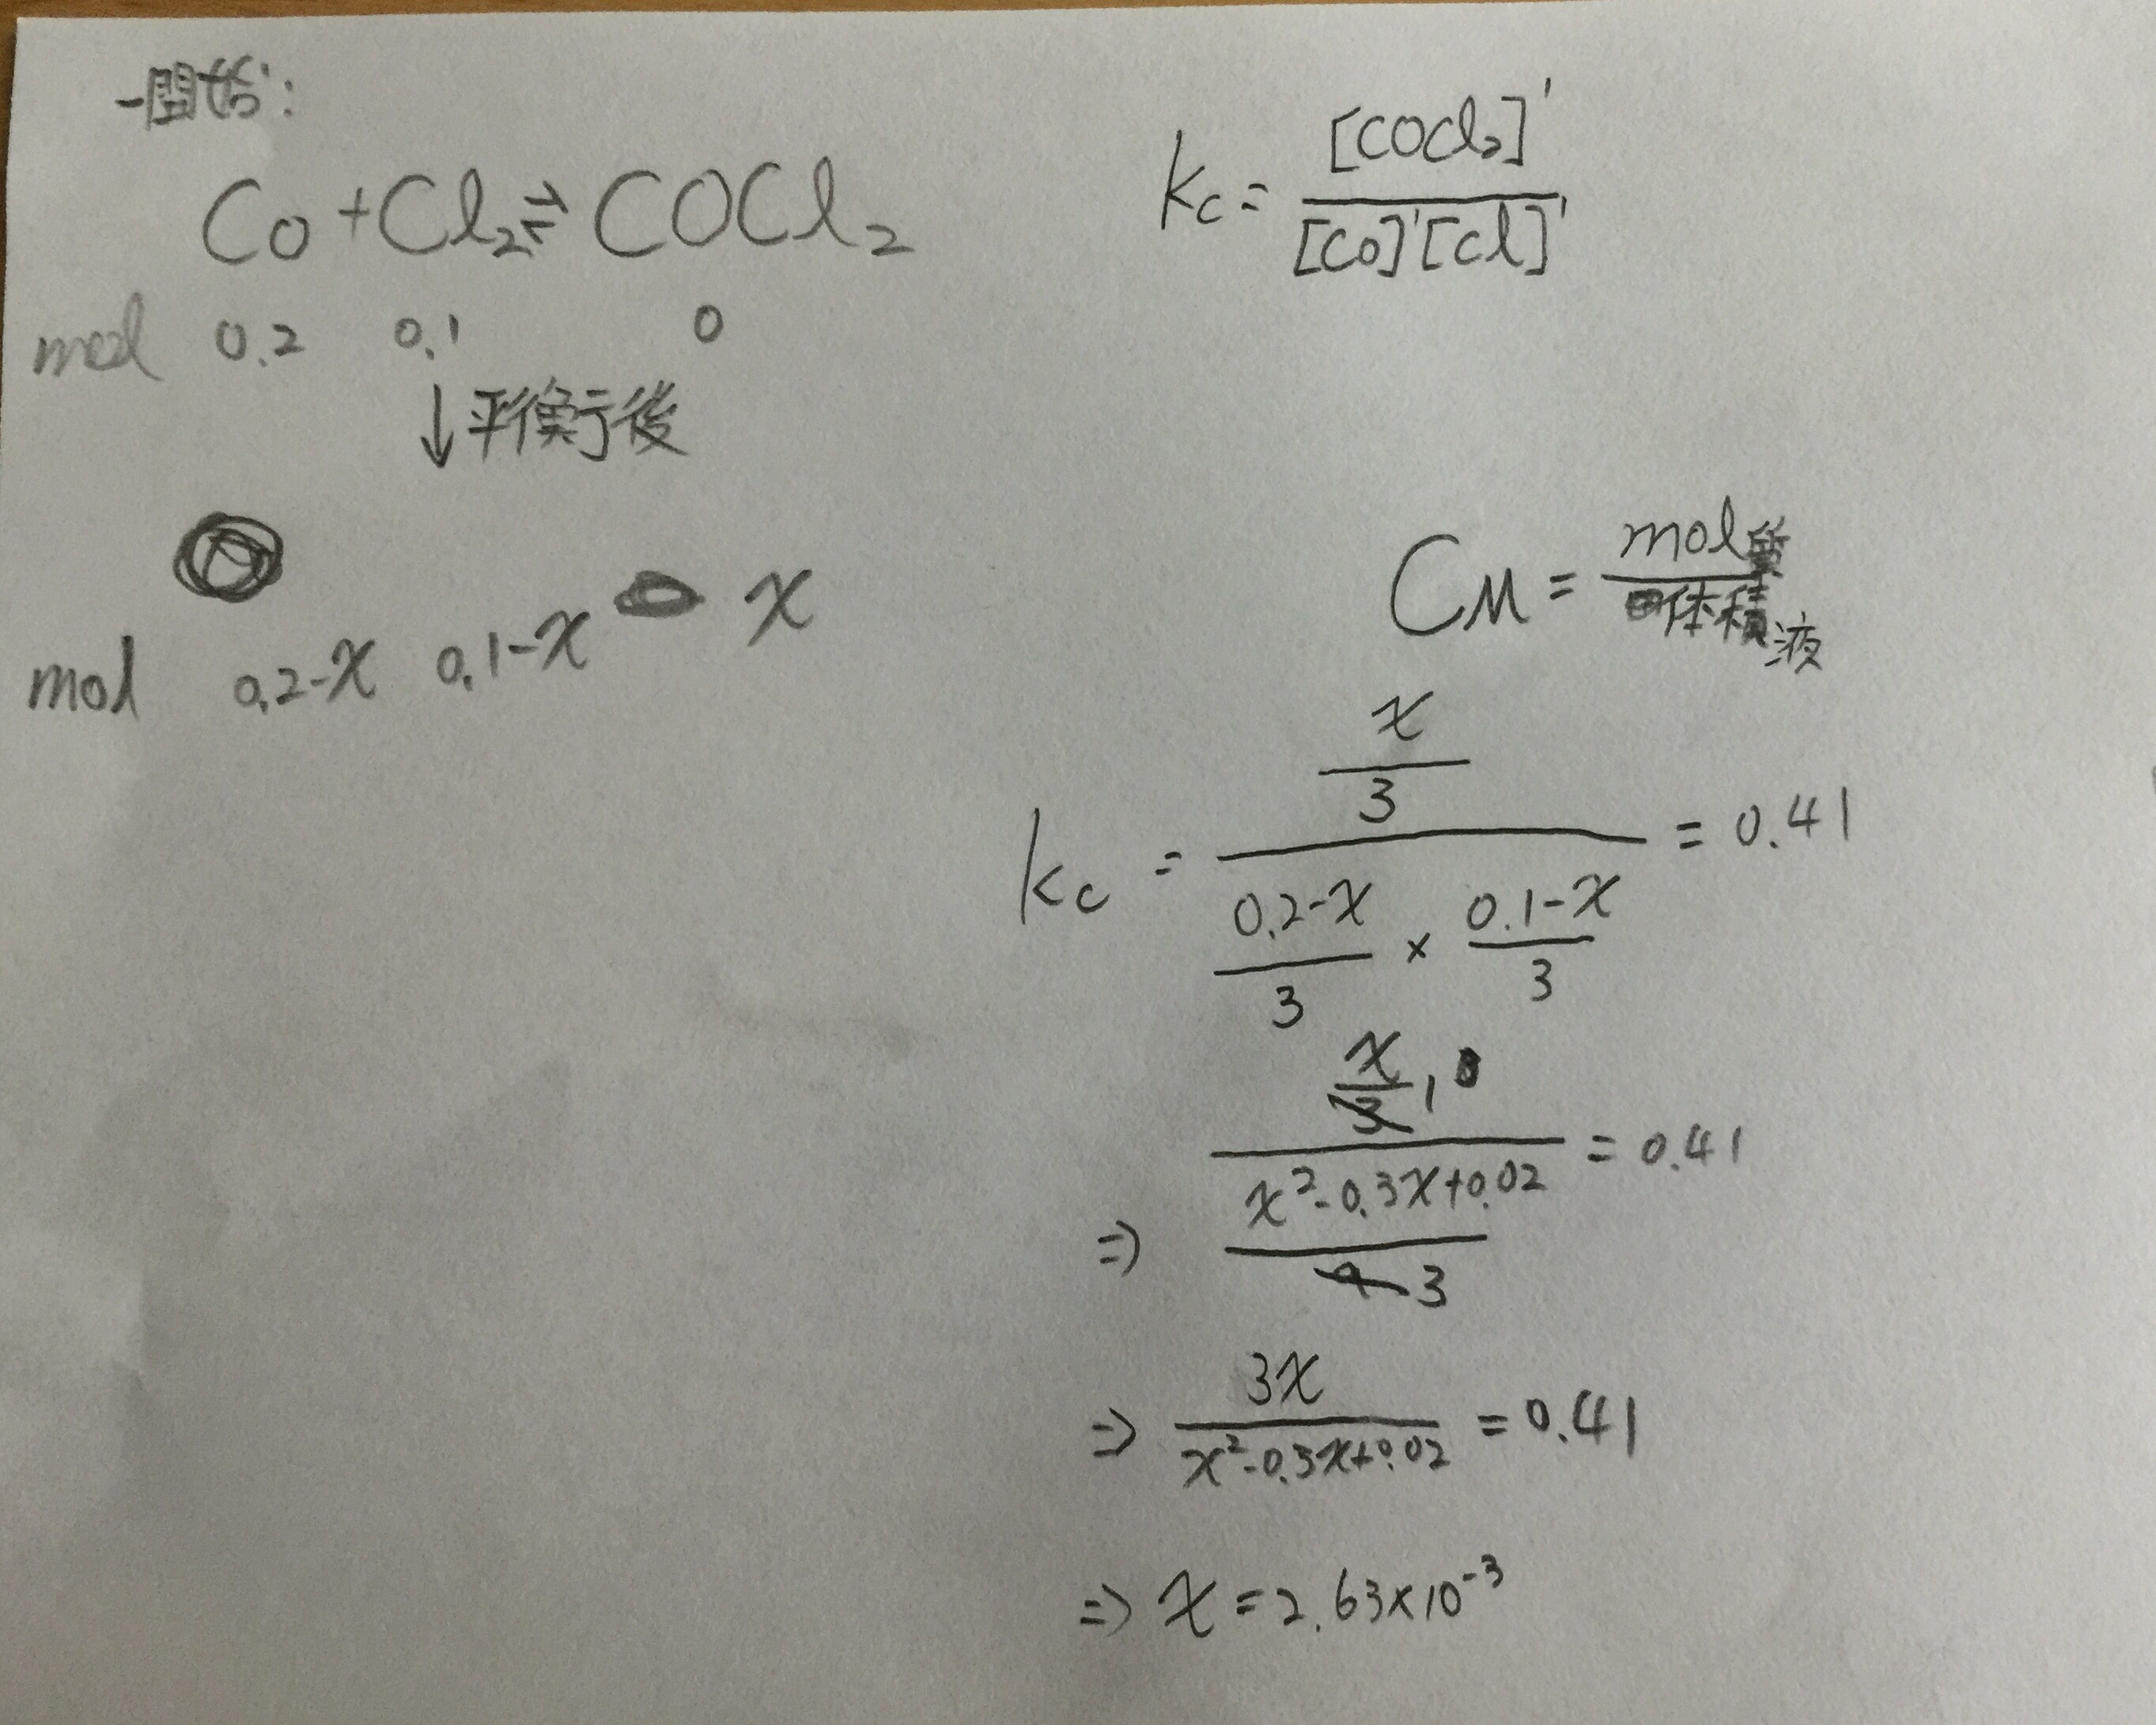 一開始:
Co + Cl₂ ⇌ COCl₂
mol 0.2 0.1 0
↓平衡後
mol 0.2-x 0.1-x x
kc = [COCl₂]' / [Co]'[Cl]'
CM = mol質 / 体積液
kc = (x/3) / ((0.2-x)/3 × (0.1-x)/3) = 0.41
⇒ (x/3 1) / ((x²-0.3x+0.02)/9 3) = 0.41
⇒ 3x / (x²-0.3x+0.02) = 0.41
⇒ x = 2.63×10⁻³